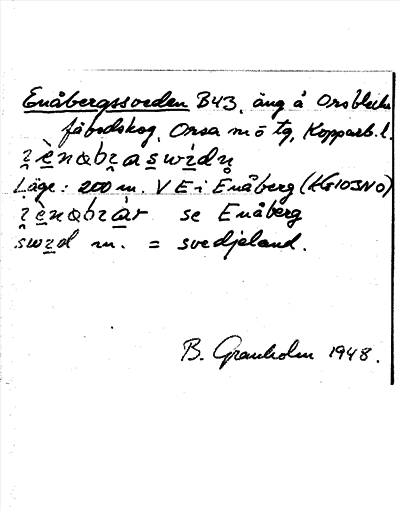 Enåbergssveden B43, äng å Orsbleckes
fäbodskog, Orsa m o tg, Kopparb. l.
Läge: 200 m. V E i Enåberg (Kg103NO)
se Enåberg
swɪd m. = svedjeland.
B. Granholm 1948.